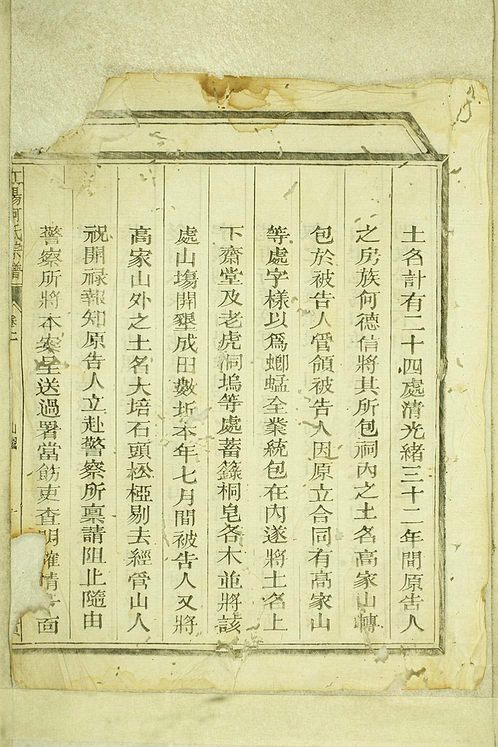 土名計有二十四處清光緒三十二年間原告人
之房族何德信將其所包祠內之土名高家山轉
包於被告人管領被告人因原立合同有高家山
等處字樣以爲螂蜢全業統包在內遂將土名上
下齋堂及老虎洞塢等處蓄籙桐皂各木並將該
處山塲開墾成田數坵本年七月間被告人又將
高家山外之土名大培石頭松椏剔去經管山人
祝開祿報知原告人立赴警察所禀請阻止隨由
警察所將本案呈送過署當飭吏查明確情 面
江陽何氏宗譜
卷二